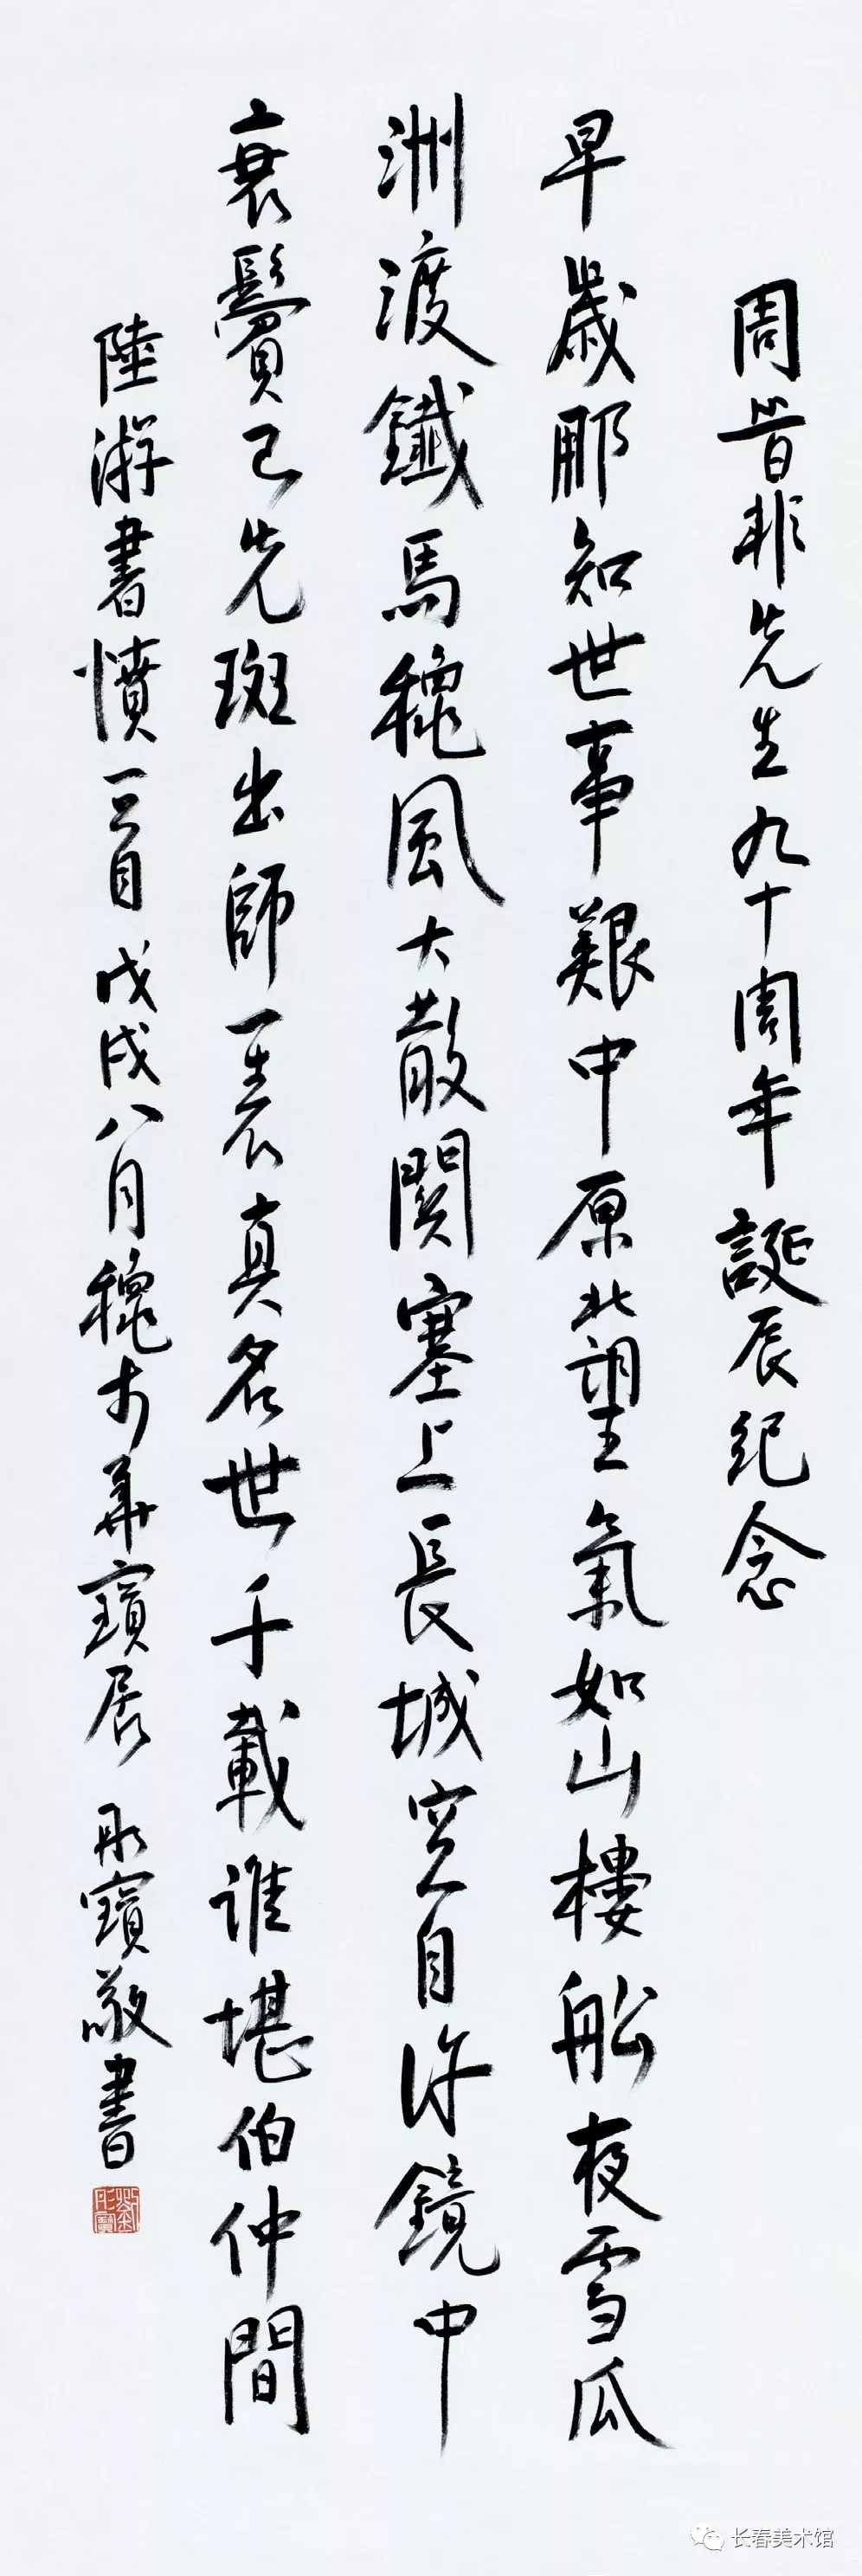 周昔非先生九十周年誕辰纪念
早歲那知世事艱中原北望氣如山樓舩夜雪瓜
洲渡鐵馬穐風大散関塞上長城空自许鏡中
衰鬢已先斑出師一表真名世千載谁堪伯仲間
陸游書憤一首戊戌八月穐于華寶居彤寶敬書
长春美术馆